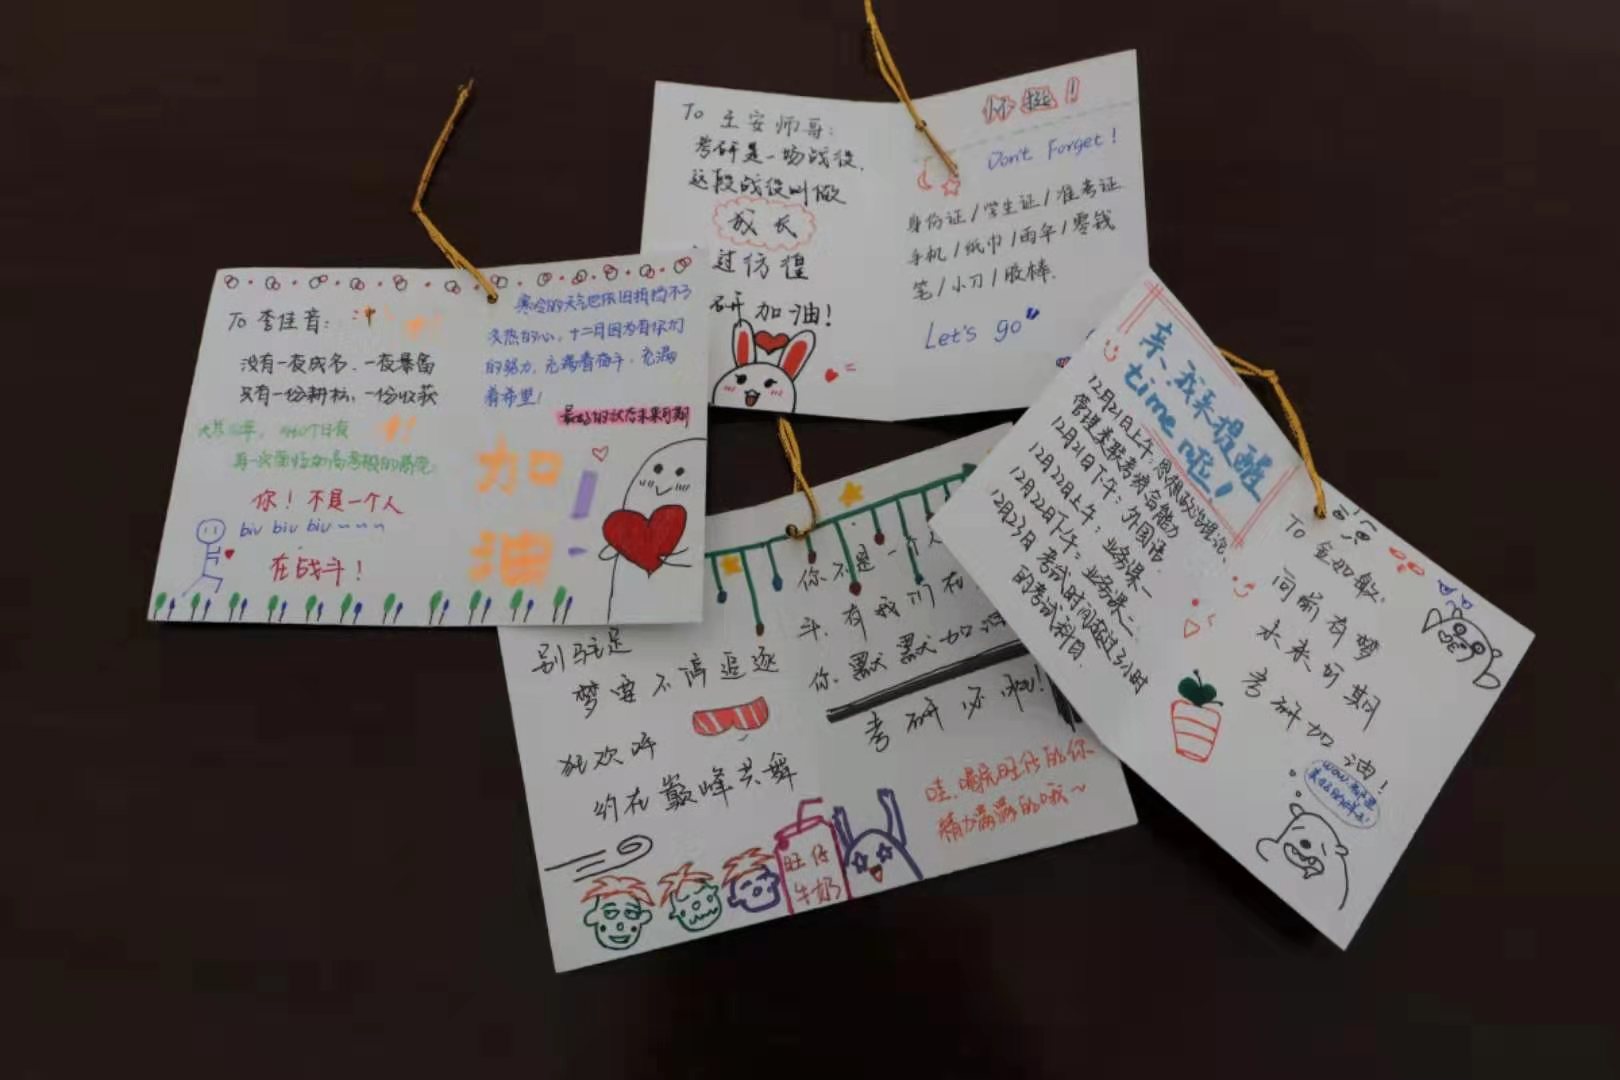 To 李佳音:
没有一夜成名、一夜暴富
只有一份耕耘,一份收获
再一次
你!不是一个人
biu biu biu~~~
在战斗!
冲!
寒冷的天气也依旧抵挡不了
炙热的心,十二月因为有你们
的努力,充满着奋斗,充满
着希望!
最好的状态未来可期
加
油!
To 王安师哥:
考研是一场战役,
这段战役叫做
成长
过彷徨
研加油!
怀挺!
Don't Forget!
身份证/学生证/准考证
手机/纸巾/雨伞/零钱
笔/小刀/胶棒.
Let's go
别驻足
梦要不停追逐
狂欢呼
约在巅峰共舞
你不是一个人
斗.有我们在
你.默默加油
考研必胜!
哇.喝完旺仔的你
精力满满的哦~
旺仔
牛奶
亲、我来提醒
time 啦!
12月21日上午:思想政治理论、
管理类联考综合能力
12月21日下午:外国语
12月22日上午:业务课一
12月22日下午:业务课二
12月23日 考试时间超过3小时
的考试科目.
To 金如敏:
向前有梦
未来可期
考研加油!
wow.